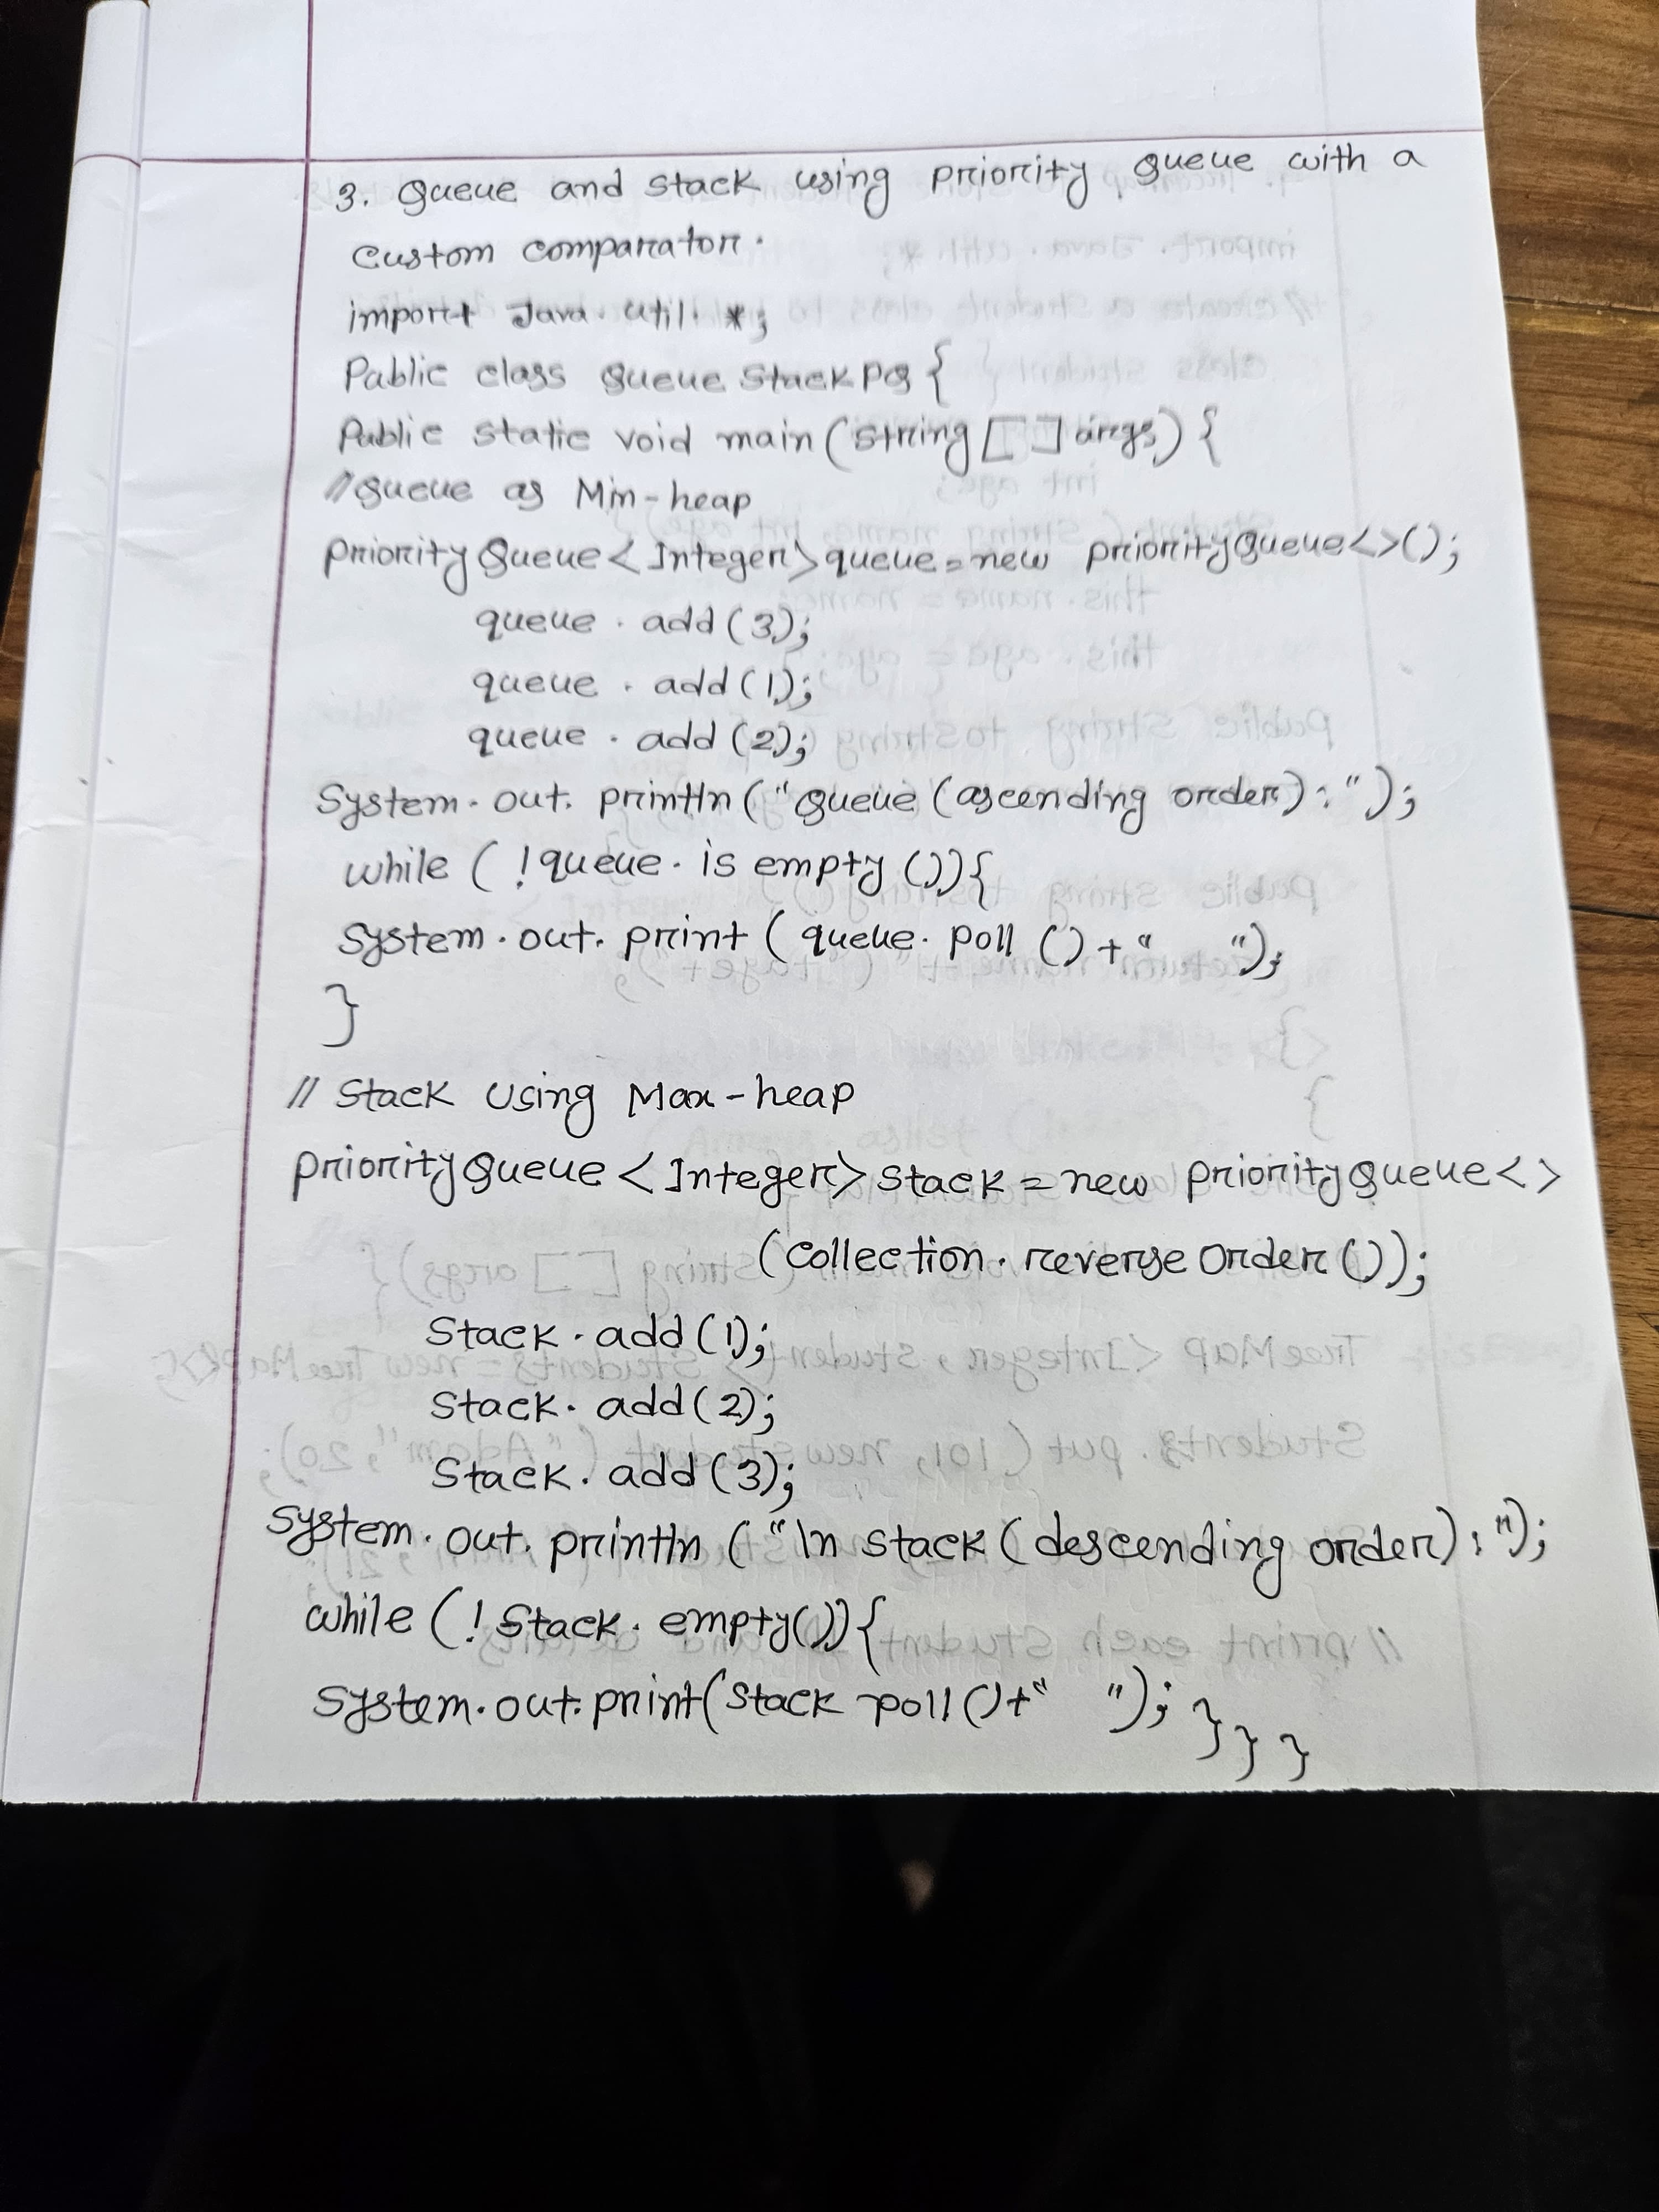 3. Queue and stack using priority queue with a
Custom comparator.
import Java.util.*;
Public class Queue Stack PQ {
Public static void main (string [ ] args) {
// Queue as Min-heap
Priority Queue < Integer> queue = new priority Queue <> ();
queue . add (3);
queue . add (1);
queue . add (2);
System. out. println ("Queue (ascending order) : ");
while ( ! queue. is empty ()) {
System. out. print ( queue. poll () + " ");
}
// Stack Using Max-heap
priority Queue < Integer> Stack = new priority Queue < >
(Collection. reverse Order ());
Stack . add (1);
Stack. add (2);
Stack. add (3);
System. out. println ("\n Stack (descending order) : ");
while (! Stack. empty()) {
System. out. print (Stack poll () + " "); } } }